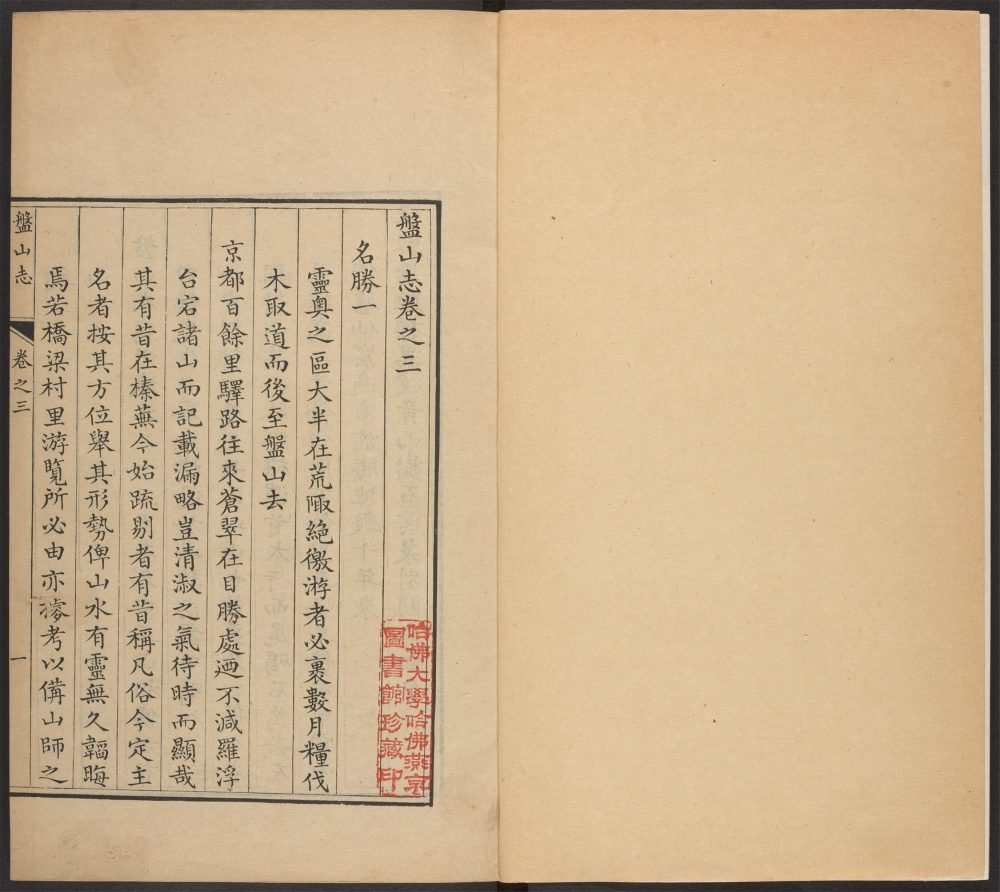 盤山志卷之三
名勝一
靈奧之區大半在荒陬絕徼游者必裹數月糧伐
木取道而後至盤山去
京都百餘里驛路往來蒼翠在目勝處迺不減羅浮
台宕諸山而記載漏略豈清淑之氣待時而顯哉
其有昔在榛蕪今始疏剔者有昔稱凡俗今定主
名者按其方位舉其形勢俾山水有靈無久韜晦
焉若橋梁村里游覽所必由亦據考以備山師之
盤山志
卷之三
一
哈佛大學哈佛燕京
圖書館珍藏印